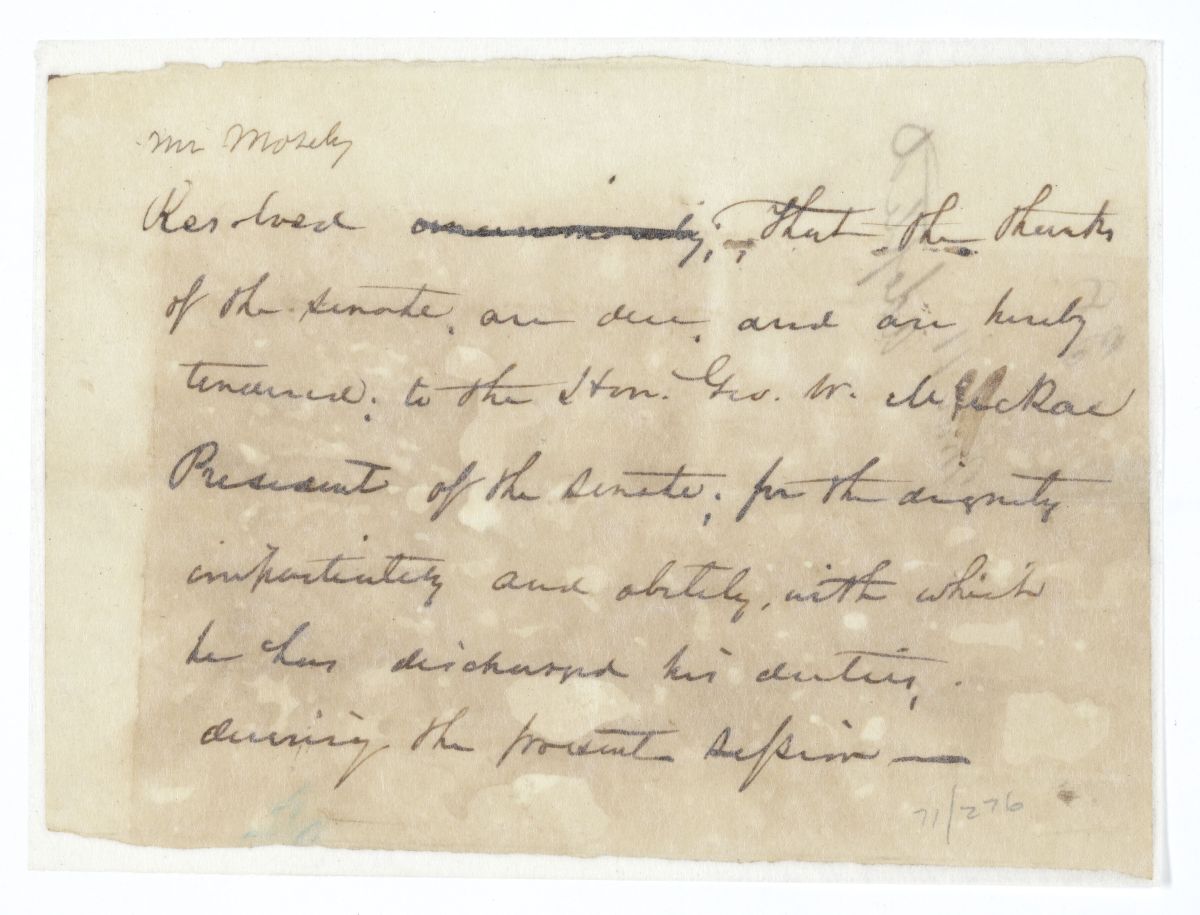 Mr Mosely
Resolved unanimously; That the thanks
of the senate, are due, and are hereby
tendered; to the Hon. Geo. W. McRae
President of the senate; for the dignity
impartiality and ability, with which
he has discharged his duties,.
during the present session —
71/276